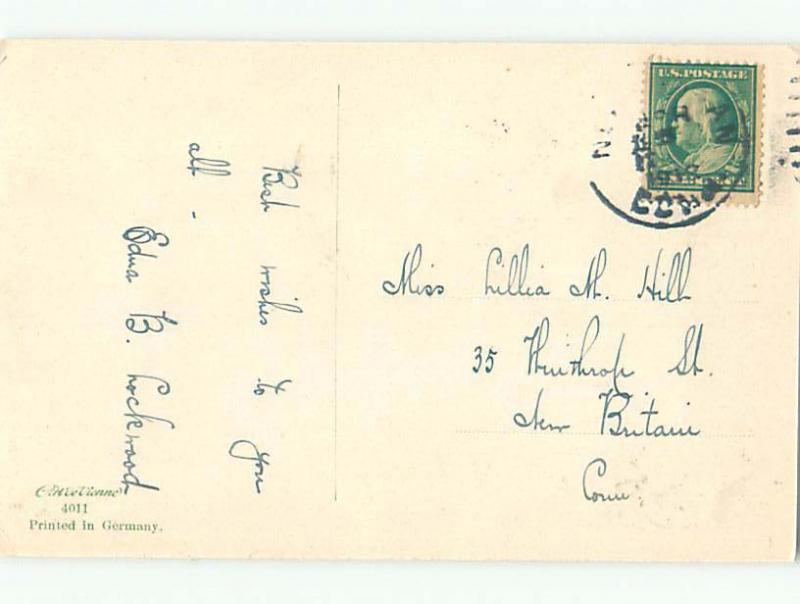 Best wishes to you
all -
Edna B. Lockwood
4011
Printed in Germany.
U.S. POSTAGE
CONN
Miss Lillia M. Hill
35 Winthrop St.
New Britain
Conn.